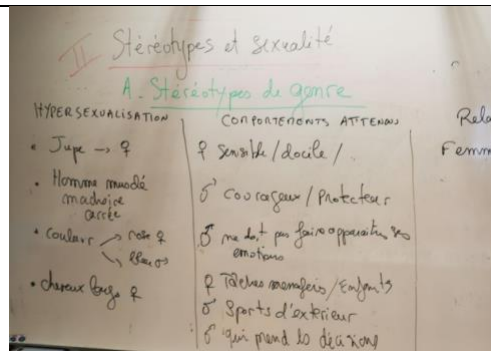 II Stéréotypes et sexualité
A. Stéréotypes de genre
HYPERSEXUALISATION
• Jupe → ♀
• Homme musclé
machoire
carrée
• couleur → rose ♀
→ bleu ♂
• cheveux longs ♀
COMPORTEMENTS ATTENDUS
♀ sensible / docile /
♂ courageux / Protecteur
♂ ne doit pas faire apparaitre ses
emotions
♀ Tâches menagères / Enfants
♂ Sports d'exterieur
♂ qui prend les décisions
Rela
Femm